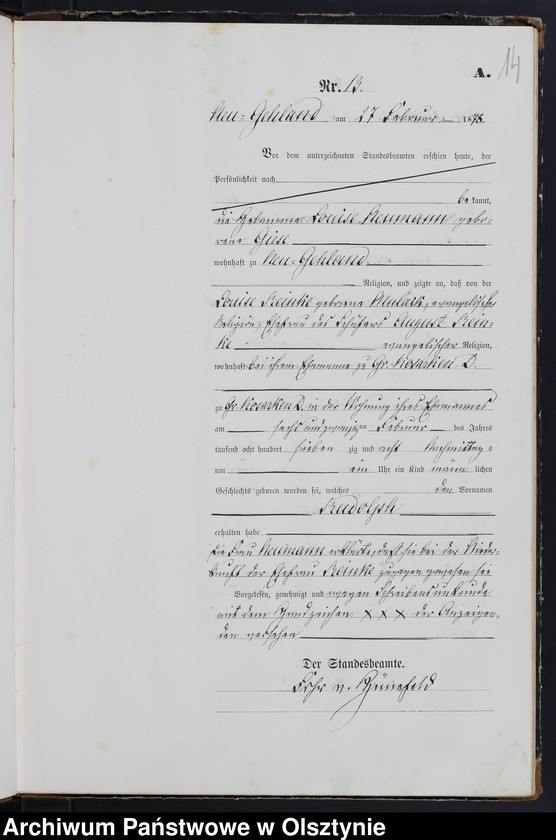 14
A.
Nr. 13.
Neu-Gehland am 27 Februar 1878.
Vor dem unterzeichneten Standesbeamten erschien heute, der
Persönlichkeit nach
bekannt,
die Hebamme Louise Neumann gebo-
rene Giese
wohnhaft zu Neu-Gehland
Religion, und zeigte an, daß von der
Louise Reinke geborene Mulark, evangelischer
Religion, Ehefrau des August Rein-
ke evangelischer Religion,
wohnhaft bei ihrem Ehemanne zu Gr. Kosarken D.
zu Gr. Kosarken D. in der Wohnung ihres Ehemannes
am sechs und zwanzigten Februar des Jahres
tausend acht hundert siebenzig und acht Nachmittags
um ein Uhr ein Kind männlichen
Geschlechts geboren worden sei, welches den Vornamen
Rudolph
erhalten habe
die Frau Neumann erklärte, daß sie bei der Nieder-
kunft der Ehefrau Reinke zugegen gewesen sei
Vorgelesen, genehmigt und wegen Schreibensunkunde
mit dem Handzeichen XXX der Anzeigen-
den versehen
Der Standesbeamte.
Frhr v.
Archiwum Państwowe w Olsztynie